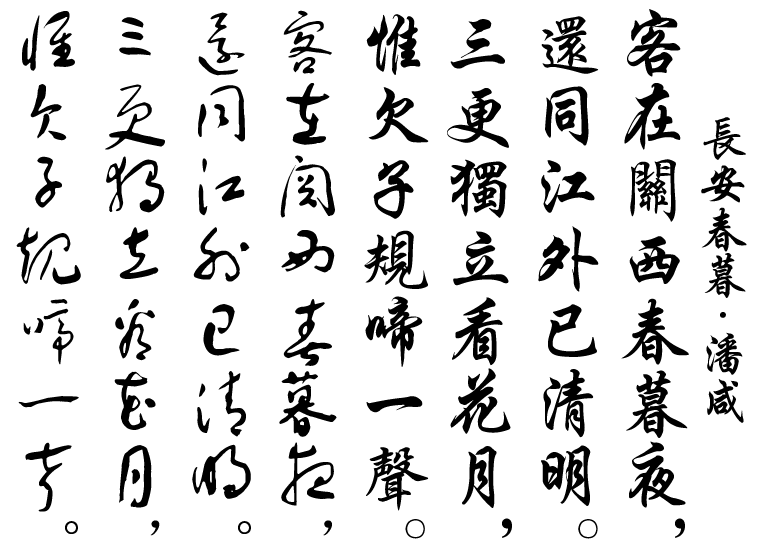 長安春暮·潘咸
客在關西春暮夜，
還同江外已清明。
三更獨立看花月，
惟欠子規啼一聲。
客在関西春暮夜，
還同江外已清明。
三更独立看花月，
惟欠子規啼一声。